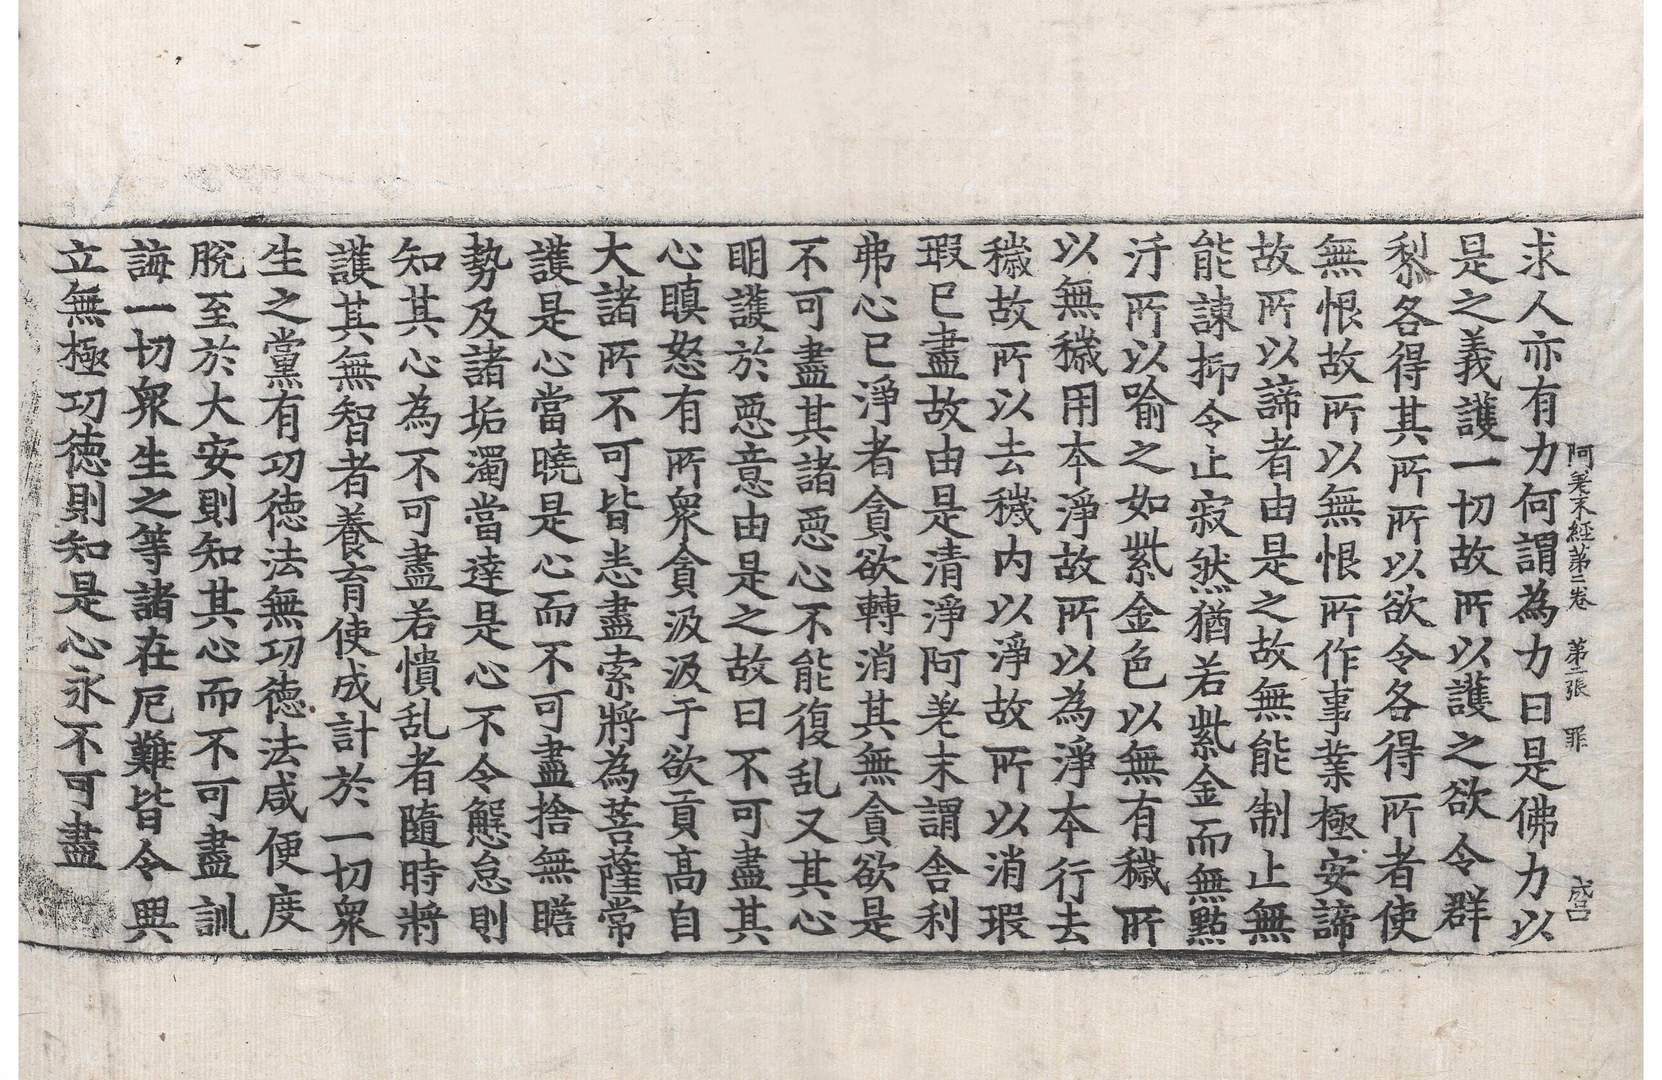 阿差末經第二卷　第二張　罪　成呂
求人亦有力何謂為力曰是佛力以
是之義護一切故所以護之欲令群
黎各得其所所以欲令各得所者使
無恨故所以無恨所作事業極安諦
故所以諦者由是之故無能制止無
能諫抑令止寂然猶若紫金而無點
汙所以喻之如紫金色以無有穢所
以無穢用本淨故所以為淨本行去
穢故所以去穢內以淨故所以消瑕
瑕已盡故由是清淨阿差末謂舍利
弗心已淨者貪欲轉消其無貪欲是
不可盡其諸惡心不能復乱又其心
明護於惡意由是之故曰不可盡其
心瞋怒有所衆貪汲汲于欲貢高自
大諸所不可皆恚盡索將為菩薩常
護是心當曉是心而不可盡捨無瞻
勢及諸垢濁當達是心不令懈怠則
知其心為不可盡若憒乱者隨時將
護其無智者養育使成計於一切衆
生之黨有功德法無功德法咸便度
脫至於大安則知其心而不可盡訓
誨一切衆生之等諸在厄難皆令興
立無極功德則知是心永不可盡